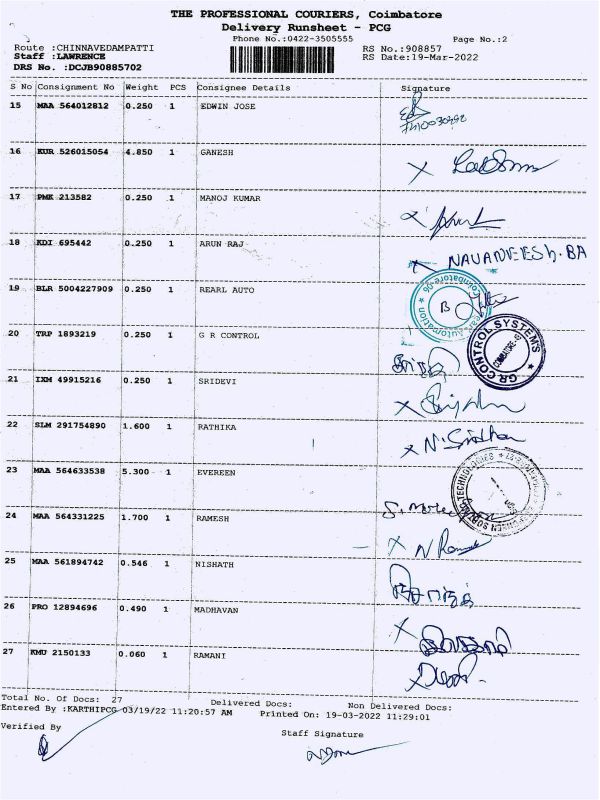 THE PROFESSIONAL COURIERS, Coimbatore
Delivery Runsheet - PCG
Phone No.:0422-3505555 Page No.:2
Route :CHINNAVEDAMPATTI RS No.:908857
Staff :LAWRENCE RS Date:19-Mar-2022
DRS No. :DCJB90885702
S No Consignment No Weight PCS Consignee Details Signature
15 MAA 564012812 0.250 1 EDWIN JOSE
16 KUR 526015054 4.850 1 GANESH
17 PMK 213582 0.250 1 MANOJ KUMAR
18 KDI 695442 0.250 1 ARUN RAJ
NAVANEESH.BA
19 BLR 5004227909 0.250 1 REARL AUTO
20 TRP 1893219 0.250 1 G R CONTROL
GR CONTROL SYSTEMS
21 IXM 49915216 0.250 1 SRIDEVI
22 SLM 291754890 1.600 1 RATHIKA
23 MAA 564633538 5.300 1 EVEREEN
24 MAA 564331225 1.700 1 RAMESH
25 MAA 561894742 0.546 1 NISHATH
26 PRO 12894696 0.490 1 MADHAVAN
27 KMU 2150133 0.060 1 RAMANI
Total No. Of Docs: 27 Delivered Docs: Non Delivered Docs:
Entered By :KARTHIPCG 03/19/22 11:20:57 AM Printed On: 19-03-2022 11:29:01
Verified By Staff Signature